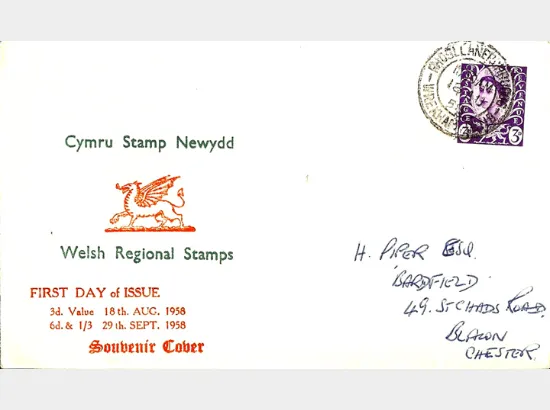 Cymru Stamp Newydd
Welsh Regional Stamps
FIRST DAY of ISSUE
3d. Value 18th. AUG. 1958
6d. & 1/3 29th. SEPT. 1958
Souvenir Cover
REVENUE
3D
H. PIPER ESQ.
BARDFIELD
49. ST CHADS ROAD.
BLACON
CHESTER.